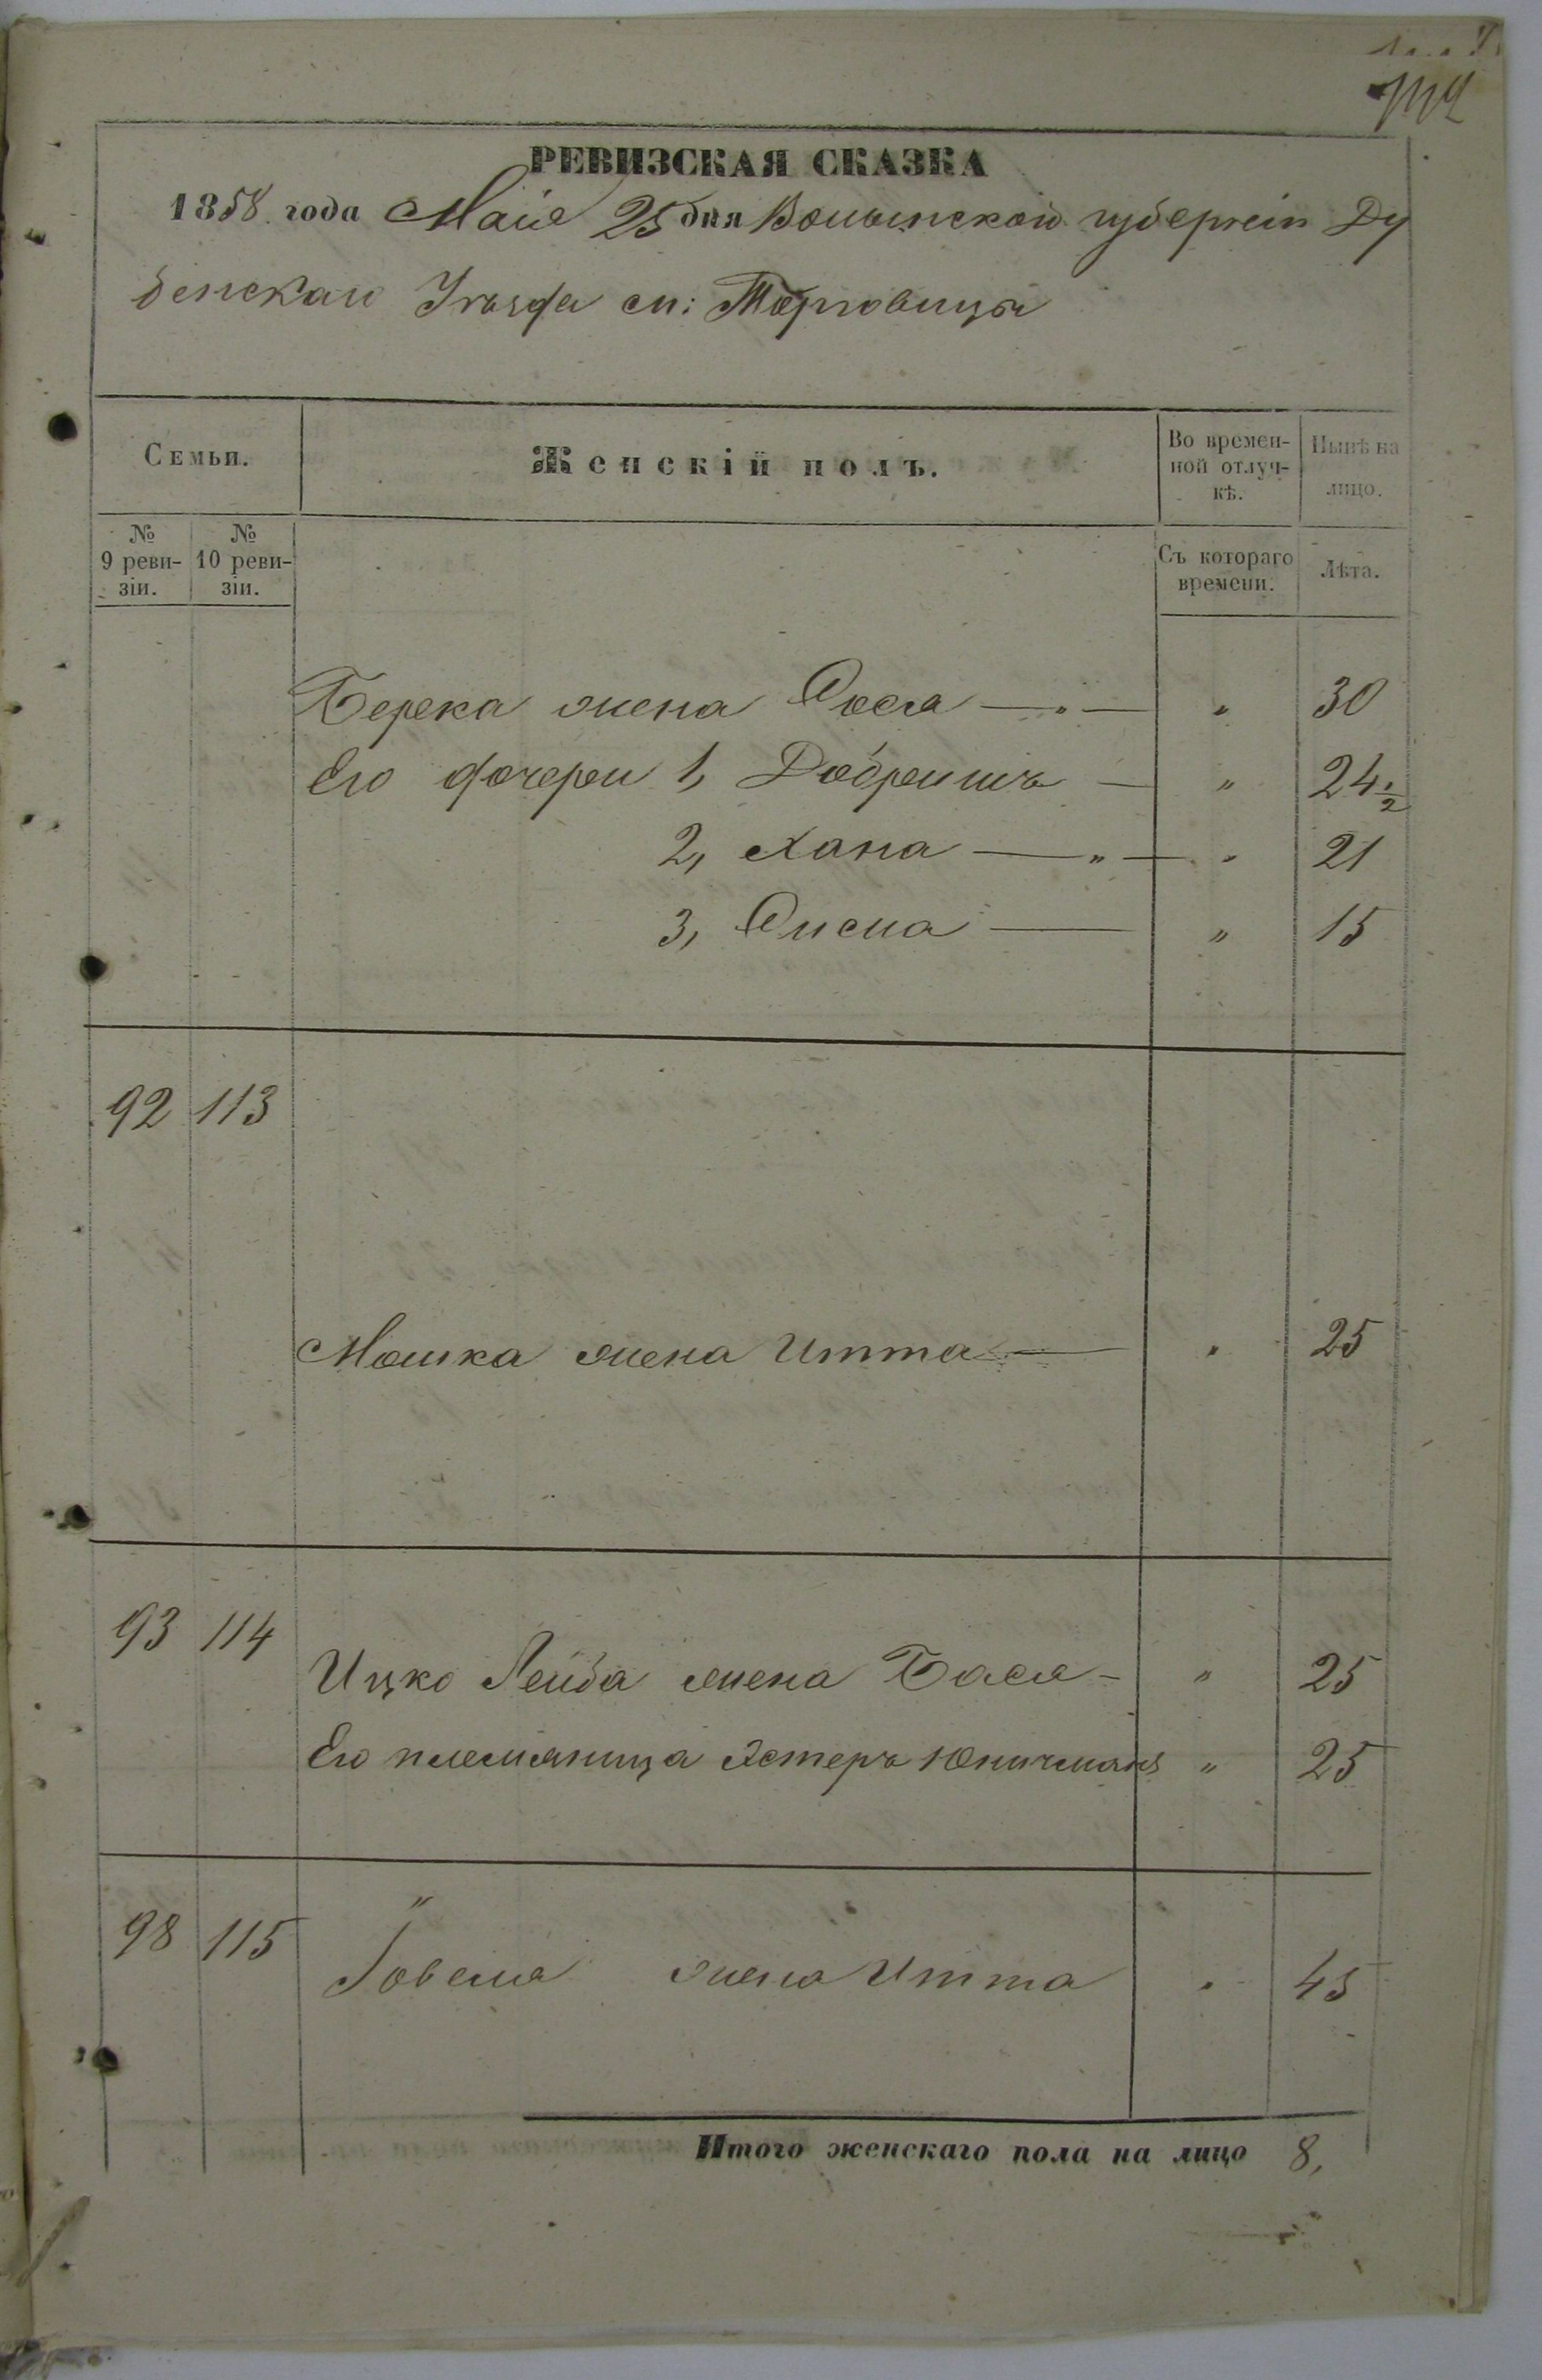 РЕВИЗСКАЯ СКАЗКА
1858 года Маія 25 дня Волынской губерніи Ду
бенскаго Уѣзда м: Торговицы
Семьи.
Женскій полъ.
Во времен-
ной отлуч-
кѣ.
Нынѣ на
лицо.
№
9 реви-
зіи.
№
10 реви-
зіи.
Съ котораго
времени.
Лѣта.
Берека жена Фося — " — " 30
Его дочери 1, Добришъ — " 24 1/2
2, Хана — " — " 21
3, — " 15
92 113
Мошка жена Итта — " 25
93 114
Ицко Лейба жена Бася — " 25
Его племяница Эстеръ " 25
98 115 "
жена Итта " 45
Итого женскаго пола на лицо 8,